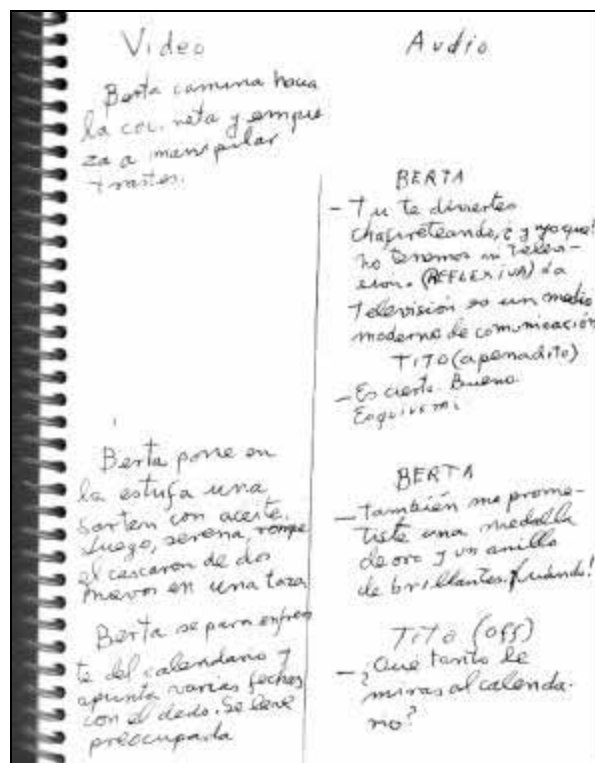 Video
Berta camina hacia
la cocineta y empie
za a manipular
trastes.
Berta pone en
la estufa una
Sarten con aceite.
Luego, serena, rompe
el cascaron de dos
huevos en una taza
Berta se para enfren
te del calendario y
apunta varias fechas
con el dedo. Se le ve
preocupada
Audio
BERTA
- Tu te diviertes
chacoteando, ¿y yo que?
no tenemos ni Televi-
sion. (REFLEXIVA) La
Televisión es un medio
moderno de comunicación
TITO (apenadito)
- Es cierto. Bueno.
BERTA
- También me prome-
tiste una medalla
de oro y un anillo
de brillantes. ¡Cuándo!
TITO (OFF)
- ¿Que tanto le
miras al calenda-
rio?